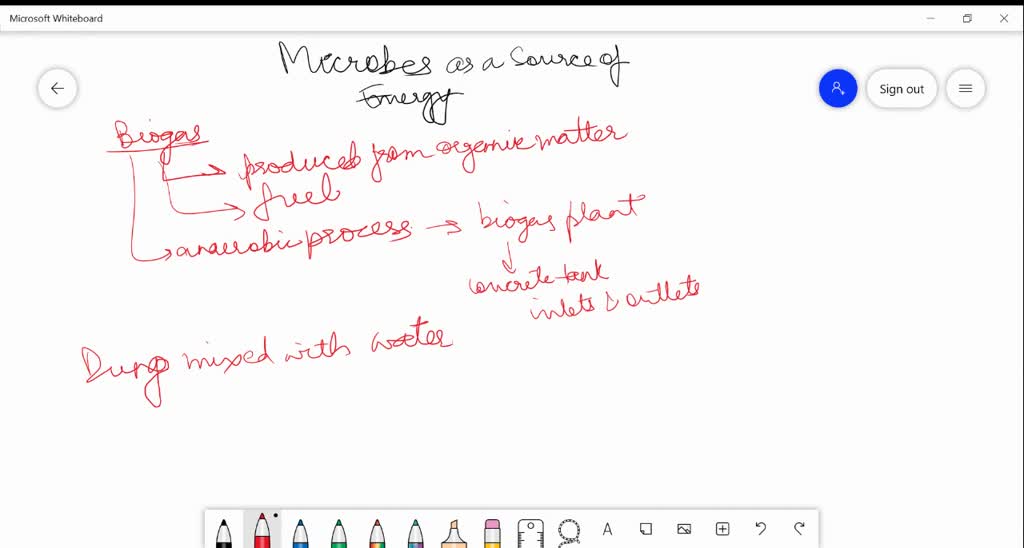 Microsoft Whiteboard
Microbes as a Source of
Energy
Sign out
Biogas
produced from organic matter
fuel
anaerobic process → biogas plant
concrete tank
inlets & outlets
Dung mixed with water
A